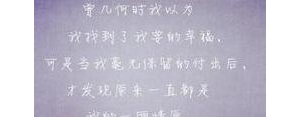 曾几何时我以为
我找到了我要的幸福,
可是当我毫无保留的付出后,
才发现原来一直都是
我的一厢情愿